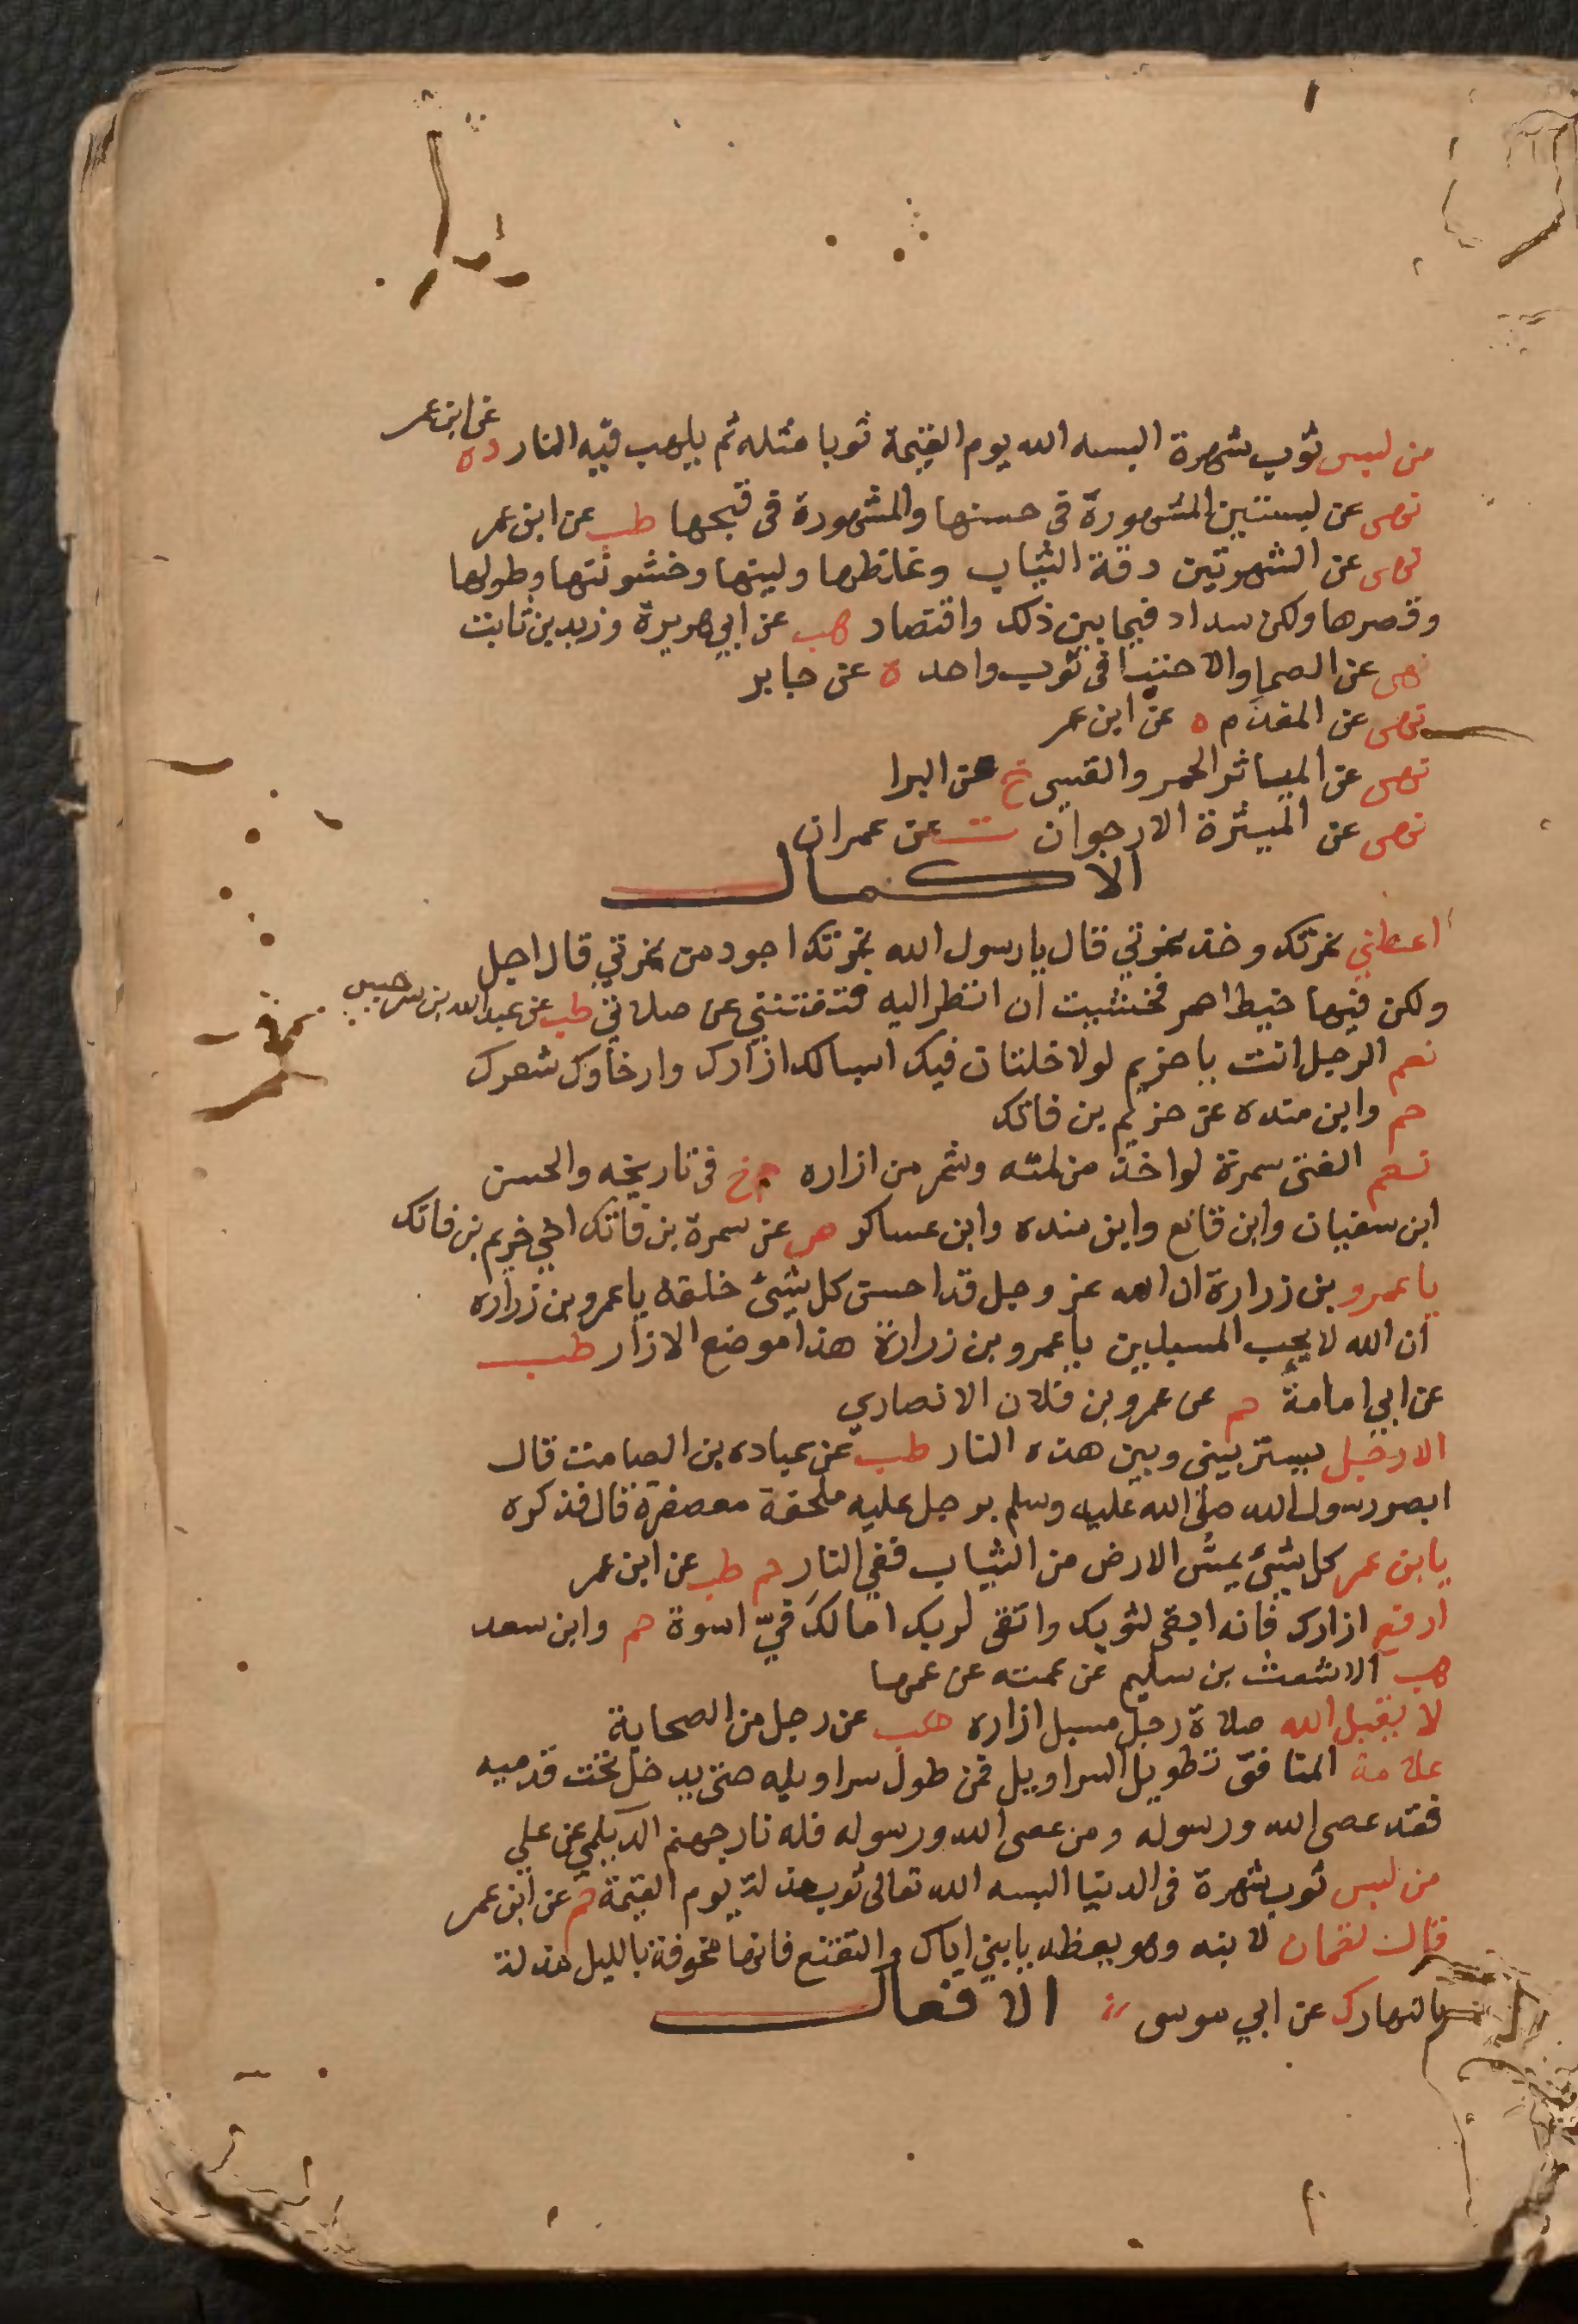 من لبس ثوب شهرة البسه الله يوم القيمة ثوبا مثله ثم يلهب فيه النار ده عن ابن عمر
نهى عن لبستين المشهورة في حسنها والمشهورة في قبحها طب عن ابن عمر
نهى عن الشهرتين دقة الثياب وغلظها ولينها وخشونتها وطولها
وقصرها ولكن سداد فيما بين ذلك واقتصاد هب عن ابي هريرة وزيد بن ثابت
نهى عن الصما والاحتبا في ثوب واحد ه عن جابر
نهى عن المفدم ه عن ابن عمر
نهى عن المياثر الحمر والقسي خ عن البرا
نهى عن الميثرة الارجوان ت عن عمران
الاكمال
اعطني نمرتك وخذ نمرتي قال يا رسول الله نمرتك اجود من نمرتي قال اجل
ولكن فيها خيط احمر فخشيت ان انظر اليه فتفتنني عن صلاتي طب عن عبد الله بن سرجس
نعم الرجل انت يا خزيم لولا خلتان فيك اسبالك ازارك وارخاؤك شعرك
حم وابن منده عن خزيم بن فاتك
نعم الفتى سمرة لو اخذ من لمته وشمر من ازاره حم خ في تاريخه والحسن
ابن سفيان وابن قانع وابن منده وابن عساكر هب عن سمرة بن فاتك اخي خزيم بن فاتك
يا عمرو بن زرارة ان الله عز وجل قد احسن كل شيئ خلقه يا عمرو بن زراره
ان الله لا يحب المسبلين يا عمرو بن زرارة هذا موضع الازار طب
عن ابي امامة حم عن عمرو بن فلان الانصاري
الا رجل يستر بيني وبين هذه النار طب عن عباده بن الصامت قال
ابصر رسول الله صلى الله عليه وسلم برجل عليه ملحفة معصفرة قال فذكره
يا بن عمر كل شيئ يمسّ الارض من الثياب ففي النار حم طب عن ابن عمر
ارفع ازارك فانه ابقى لثوبك واتقى لربك اما لك فيّ اسوة حم وابن سعد
هب الاشعث بن سليم عن عمته عن عمها
لا يقبل الله صلاة رجل مسبل ازاره هب عن رجل من الصحابة
علامة المنافق تطويل السراويل فمن طول سراويله حتى يدخل تحت قدميه
فقد عصى الله ورسوله ومن عصى الله ورسوله فله نار جهنم الديلمي عن علي
من لبس ثوب شهرة في الدنيا البسه الله تعالى ثوب مذلة يوم القيمة حم عن ابن عمر
قال لقمان لابنه وهو يعظه يا بني اياك والتقنع فانها مخوفة بالليل مذلة
بالنهار ك عن ابي موسى الافعال